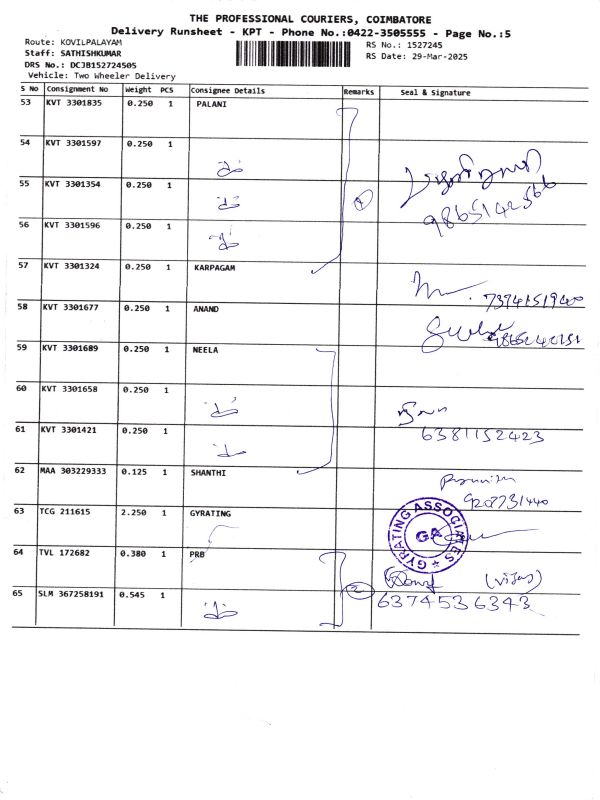 THE PROFESSIONAL COURIERS, COIMBATORE
Delivery Runsheet - KPT - Phone No.:0422-3505555 - Page No.:5
Route: KOVILPALAYAM RS No.: 1527245
Staff: SATHISHKUMAR RS Date: 29-Mar-2025
DRS No.: DCJB152724505
Vehicle: Two Wheeler Delivery
S No Consignment No Weight PCS Consignee Details Remarks Seal & Signature
53 KVT 3301835 0.250 1 PALANI
54 KVT 3301597 0.250 1
55 KVT 3301354 0.250 1 4
9865142566
56 KVT 3301596 0.250 1
57 KVT 3301324 0.250 1 KARPAGAM
58 KVT 3301677 0.250 1 ANAND
59 KVT 3301689 0.250 1 NEELA
60 KVT 3301658 0.250 1
61 KVT 3301421 0.250 1 6381152423
62 MAA 303229333 0.125 1 SHANTHI
63 TCG 211615 2.250 1 GYRATING
GYRATING ASSOCIATES
GA
64 TVL 172682 0.380 1 PRB
65 SLM 367258191 0.545 1 2 6374536343